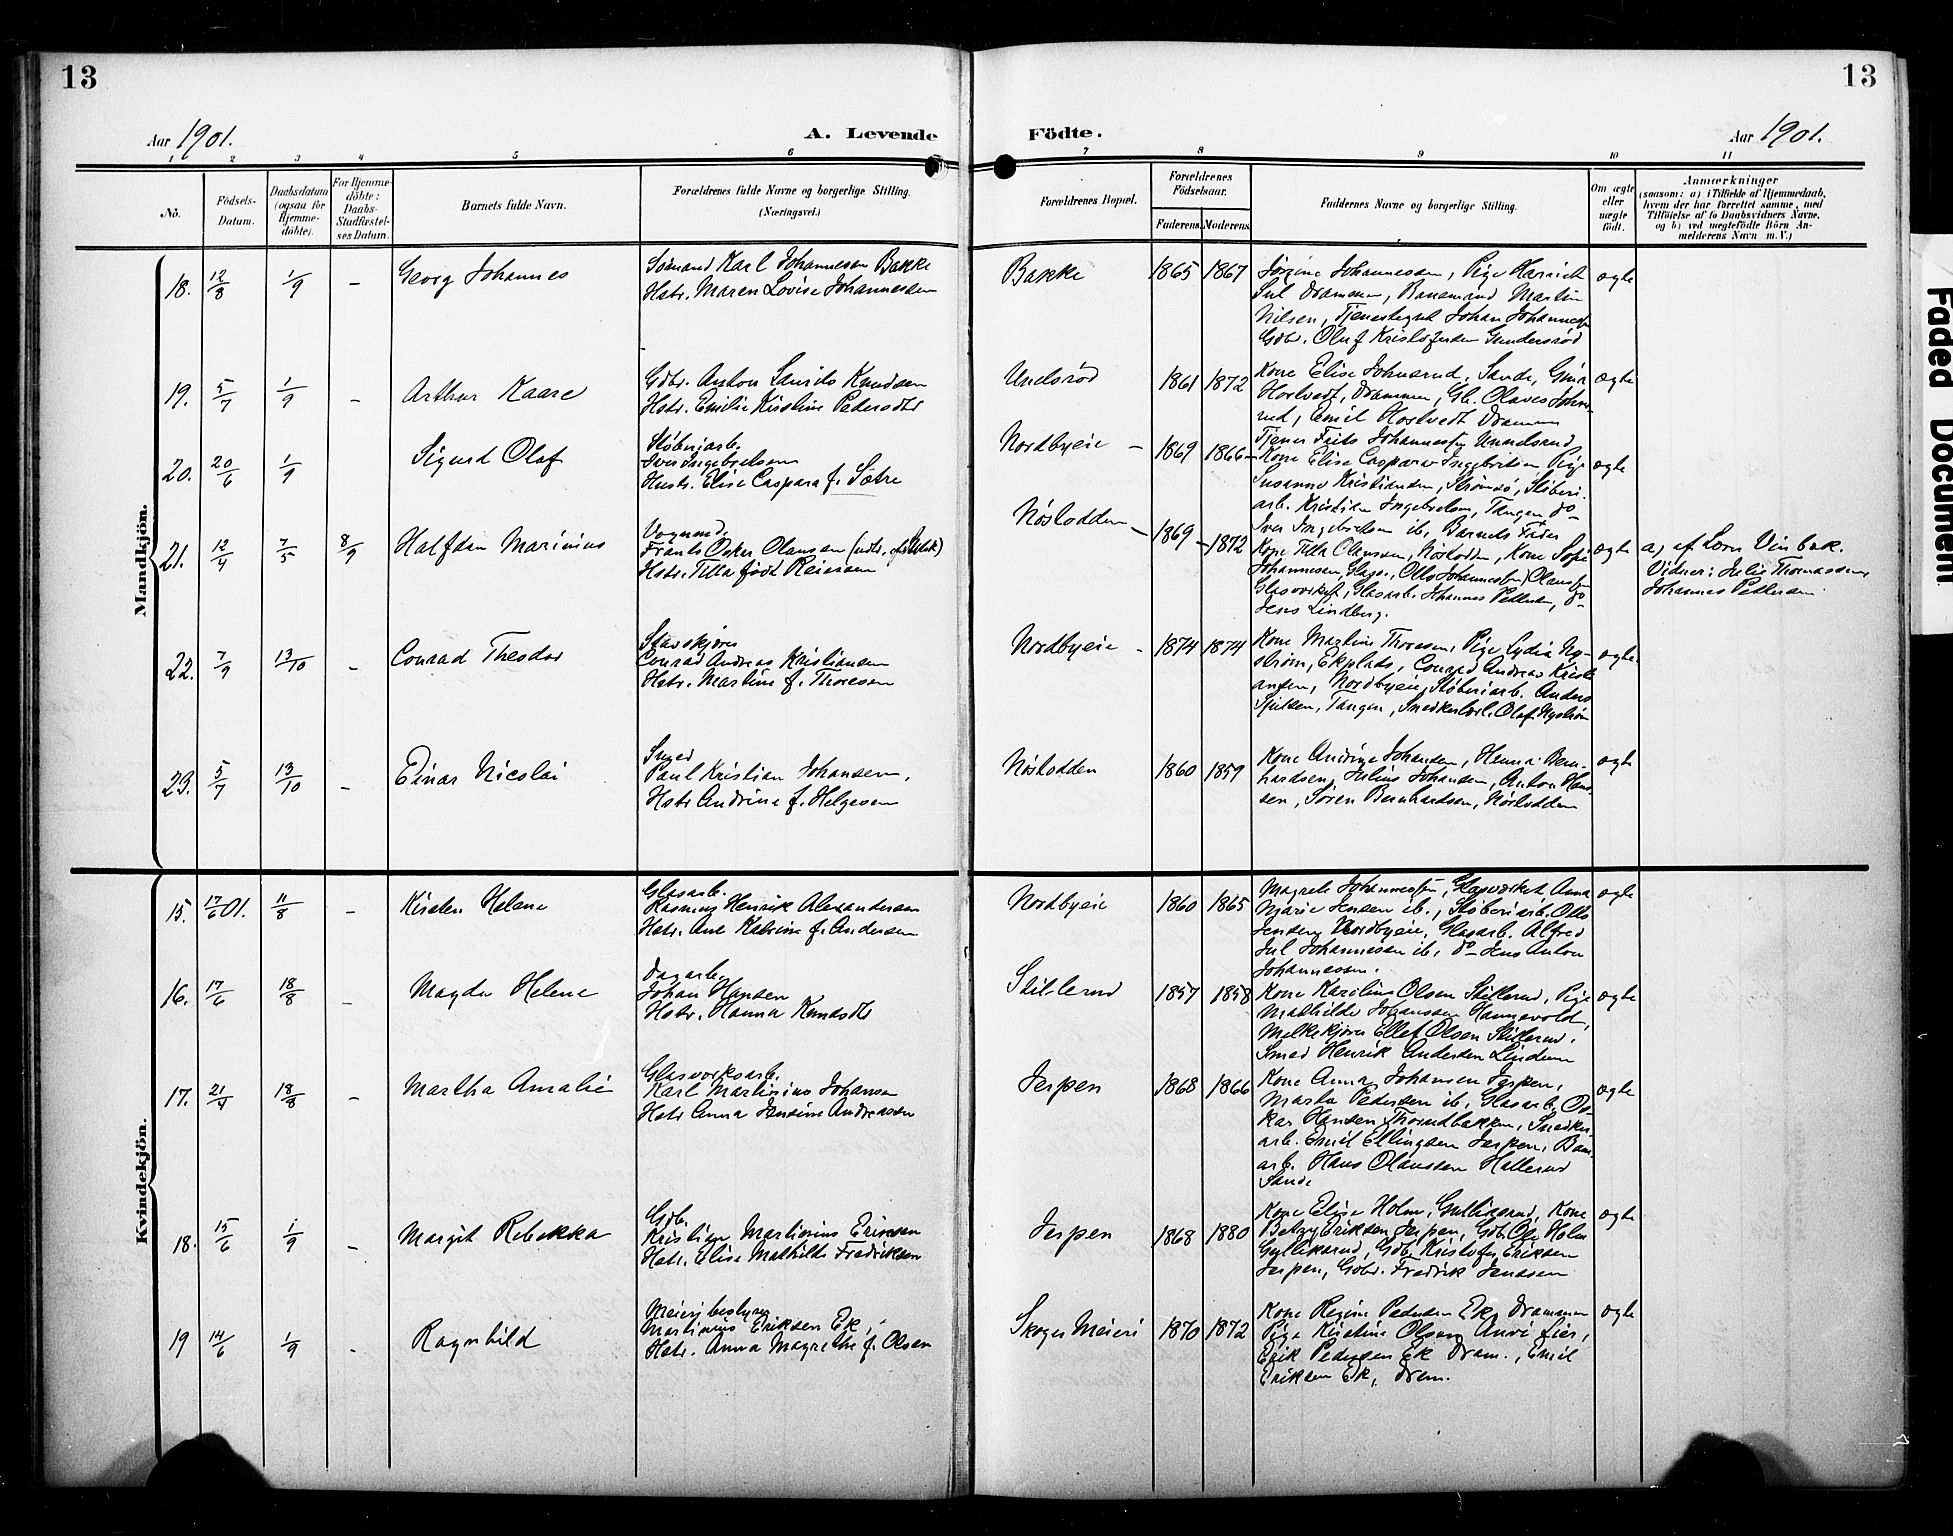 13
13
Aar 1901.
A. Levende
Födte.
Aar 1901.
1 2 3 4 5 6 7 8 9 10 11
No.
Födsels-
Datum.
Daabsdatum
(ogsaa for
Hjemme-
döbte).
For Hjemme-
döbte:
Daabs-
Stadfæstel-
ses Datum.
Barnets fulde Navn.
Forældrenes fulde Navne og borgerlige Stilling.
(Næringsvei.)
Forældrenes Bopæl.
Forældrenes
Födselsaar.
Faderens.
Moderens.
Faddernes Navne og borgerlige Stilling.
Om ægte
eller
uægte
födt.
Anmærkninger
(saasom: a) i Tilfælde af Hjemmedaab,
hvem der har forrettet samme, med
Tilföielse af to Daabsvidners Navne,
og b) ved uægtefödte Börn An-
melderens Navn m. V.)
Mandkjön.
18. 12/8 1/9 - Georg Johannes
Sømand Karl Johannesen Bakke
Hstr. Maren Lovise Johannesen
Bakke 1865 1867
Jørgine Johannessen, Pige Harriet
Jul Drammen, Banemand Martin
Nilsen, Tjenestegut Johan Johannessen
Gdbr. Oluf Kristofersen Gundersrød
ægte
19. 5/7 1/9 - Arthur Kaare
Gdbr. Anton Laurits Knudsen
Hstr. Emilie Kirstine Pedersdtr
Undsrød 1861 1872
Kone Elise Johnsrud, Sande, Gina
Hostvedt, Drammen, Gb. Olaves Johns-
rud, Emil Hostvedt Drammen
ægte
20. 20/6 1/9 Sigurd Olaf
Støberiarb.
Iver Ingebretsen
Hustr. Elise Caspara f. Sætre
Nordbyeie - 1869 1866 -
Tjener Frits Johannessen
Kone Elise Caspara Ingebritsen, Pige
Susanne Kristiansen, Strømsø, Støberi-
arb. Kristian Ingebretsen, Tangen do -
Iver Ingebretsen ib, Barnets Fader
ægte
21. 12/4 7/5 8/9 Halfdan Marinius
Vognmd.
Frants Oskar Olausen
Hstr. Tilla født Reiersen
Nøslodden - 1869 - 1872
Kone Tilla Olaussen, Nøslodden, Kone Sofie
Johannesen, Glasv., Otto Johannessen, Olaussen
Glasværket, Glasarb. Johannes Pettersen, do -
Jens Lindberg.
ægte
a) af Lorn Vinbæk.
Vidner: Julie Thomassen,
Johannes Pettersen.
22. 7/9 13/10 - Conrad Theodor
Conrad Andreas Kristiansen
Hstr. Martine f. Thoresen
Nordbyeie - 1874 1874
Kone Martine Thoresen, Pige Lydia Ny-
strøm, Ekplads, Conrad Andreas Kristi-
ansen, Nordbyeie, Støberiarb. Anders
Tangen, Snedkerlærl. Olaf Nystrøm
ægte
23. 5/7 13/10 - Einar Nicolai
Smed
Paul Kristian Johansen,
Hstr Andrine f. Helgesen
Nøslodden 1860 1859
Kone Andrine Johansen, Hanna Bern-
hardsen, Julius Johansen, Anton Han-
sen, Søren Bernhardsen, Nøslodden
ægte
Kvindekjön.
15. 17/6 01. 11/8 - Kirsten Helene
Glasarb.
Rasmus Henrik Alexandersen
Hstr. Ane Katrine f. Andersen
Nordbyeie 1860 1865
Magrete Johannessen, Glasværket, Anna
Marie Jensen ib., Støberiarb. Otto
Jensen, Nordbyeie, Glasarb. Alfred
Jul Johannessen ib, do - Jens Anton
Johannessen.
ægte
16. 17/6 18/8 - Magda Helene
Dagarb.
Johan Hansen
Hstr. Hanna Knudsdtr
Stillerud 1857 1858
Kone Karoline Olsen Stillerud, Pige
Mathilde Johansen Hangevold,
Melkekjører Ellef Olsen Stillerud,
Smed Henrik Andersen Lindum
ægte
17. 21/4 18/8 - Martha Amalie
Glasværksarb.
Karl Martinius Johansen
Hstr Anna Jensine Andreassen
Jerpen 1868 1866
Kone Anna Johansen Jerpen,
Marta Pedersen ib, Glasarb. Os-
kar Hansen Thorudbakken, Snedker-
arb. Emil Ellingsen Jerpen, Ban-
arb. Hans Olaussen Hallerud
Sande
ægte
18. 15/6 1/9 - Margit Rebekka
Gdb.
Kristian Martinius Eriksen
Hstr. Elise Mathilde Fredriksen
Jerpen 1868 1880
Kone Elise Holm, Gulliksrud, Kone
Betzy Eriksen Jerpen, Gdb. Ole Holm
Gulliksrud, Gdb. Kristofer Eriksen
Jerpen, Gdbr. Fredrik Jenssen
ægte
19 14/6 1/9 - Ragnhild
Meieribestyrer
Martinius Eriksen Ek,
Hstr. Anna Magrethe f. Olsen
Skoger Meieri 1870 1872
Kone Regine Pedersen Ek, Drammen
Pige Kirstine Olsen, Lier,
Erik Pedersen Ek Dram., Emil
Eriksen Ek, Dram.
ægte
Faded Document